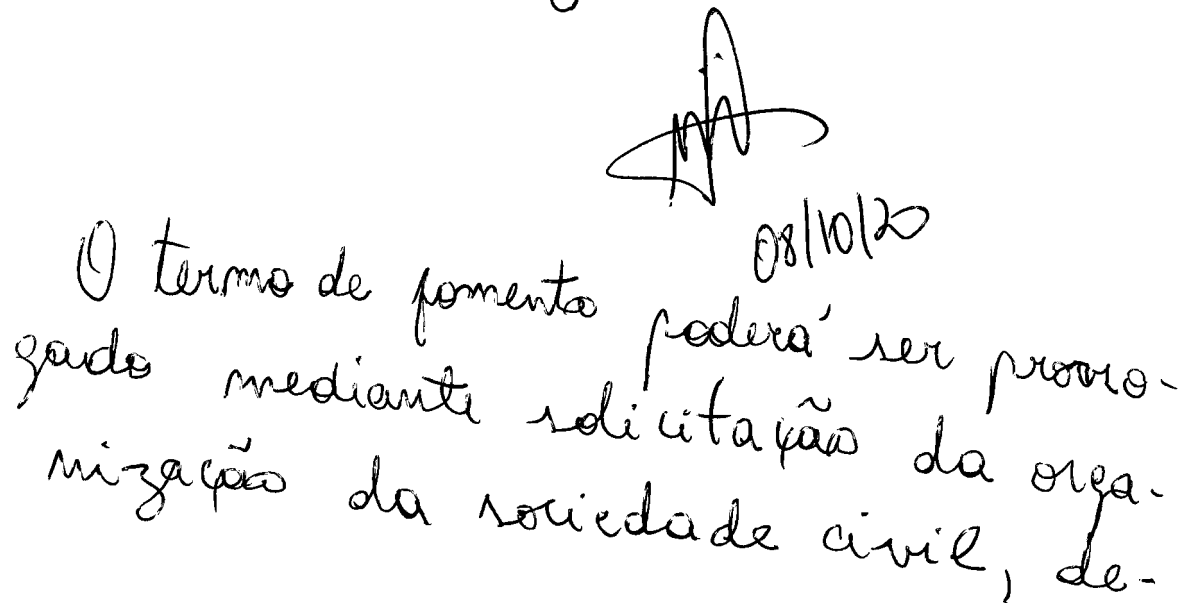 08/10/20
O termo de fomento poderá ser prorro-
gado mediante solicitação da orga-
nização da sociedade civil, de-